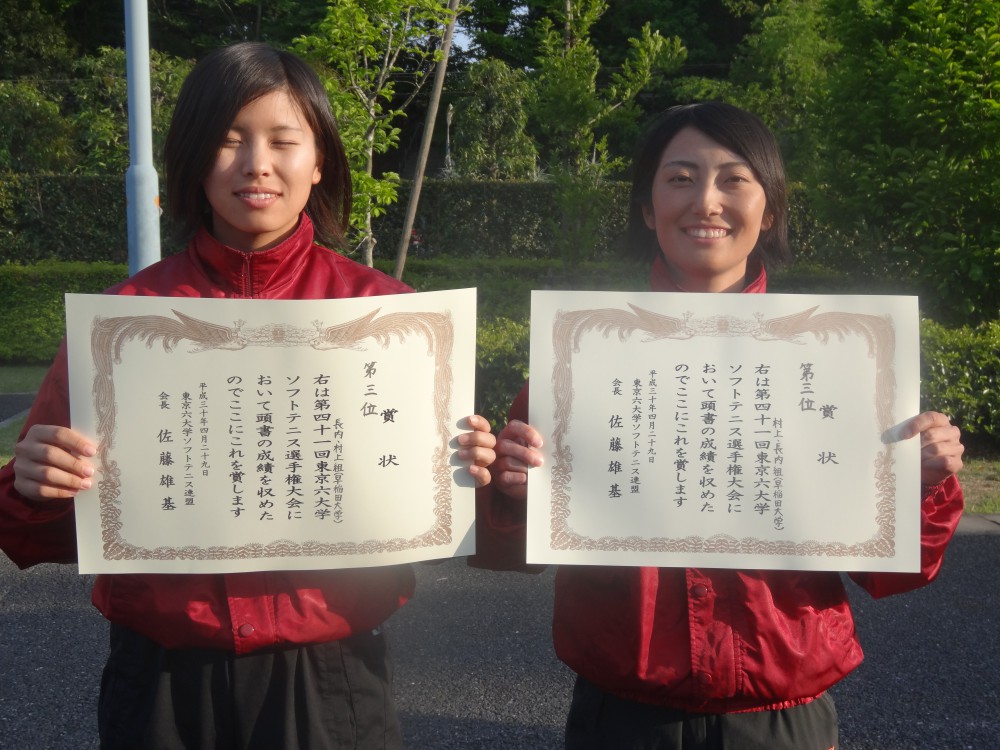 賞状
第三位
長内・村上組(早稲田大学)
右は第四十一回東京六大学
ソフトテニス選手権大会に
おいて頭書の成績を収めた
のでここにこれを賞します
平成三十年四月二十九日
東京六大学ソフトテニス連盟
会長 佐藤雄基
賞状
第三位
村上・長内組(早稲田大学)
右は第四十一回東京六大学
ソフトテニス選手権大会に
おいて頭書の成績を収めた
のでここにこれを賞します
平成三十年四月二十九日
東京六大学ソフトテニス連盟
会長 佐藤雄基